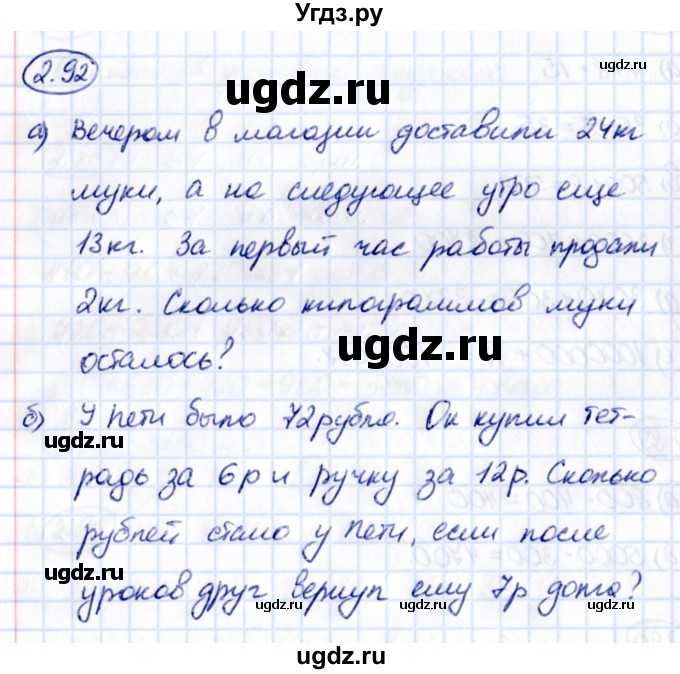 Угдз.ру
2.92
ugdz.ru
ugdz.ru
а) Вечером в магазин доставили 24кг
ugdz.ru
муки, а на следующее утро еще
13кг. За первый час работы продали
2кг. Сколько килограммов муки
осталось?
ugdz.ru
ugdz.ru
б) У Пети было 72рубля. Он купил тет-
ugdz.ru
радь за 6р и ручку за 12р. Сколько
рублей стало у Пети, если после
ugdz.ru
уроков друг вернул ему 7р долга?
ugdz.ru
ugdz.ru
ugdz.ru